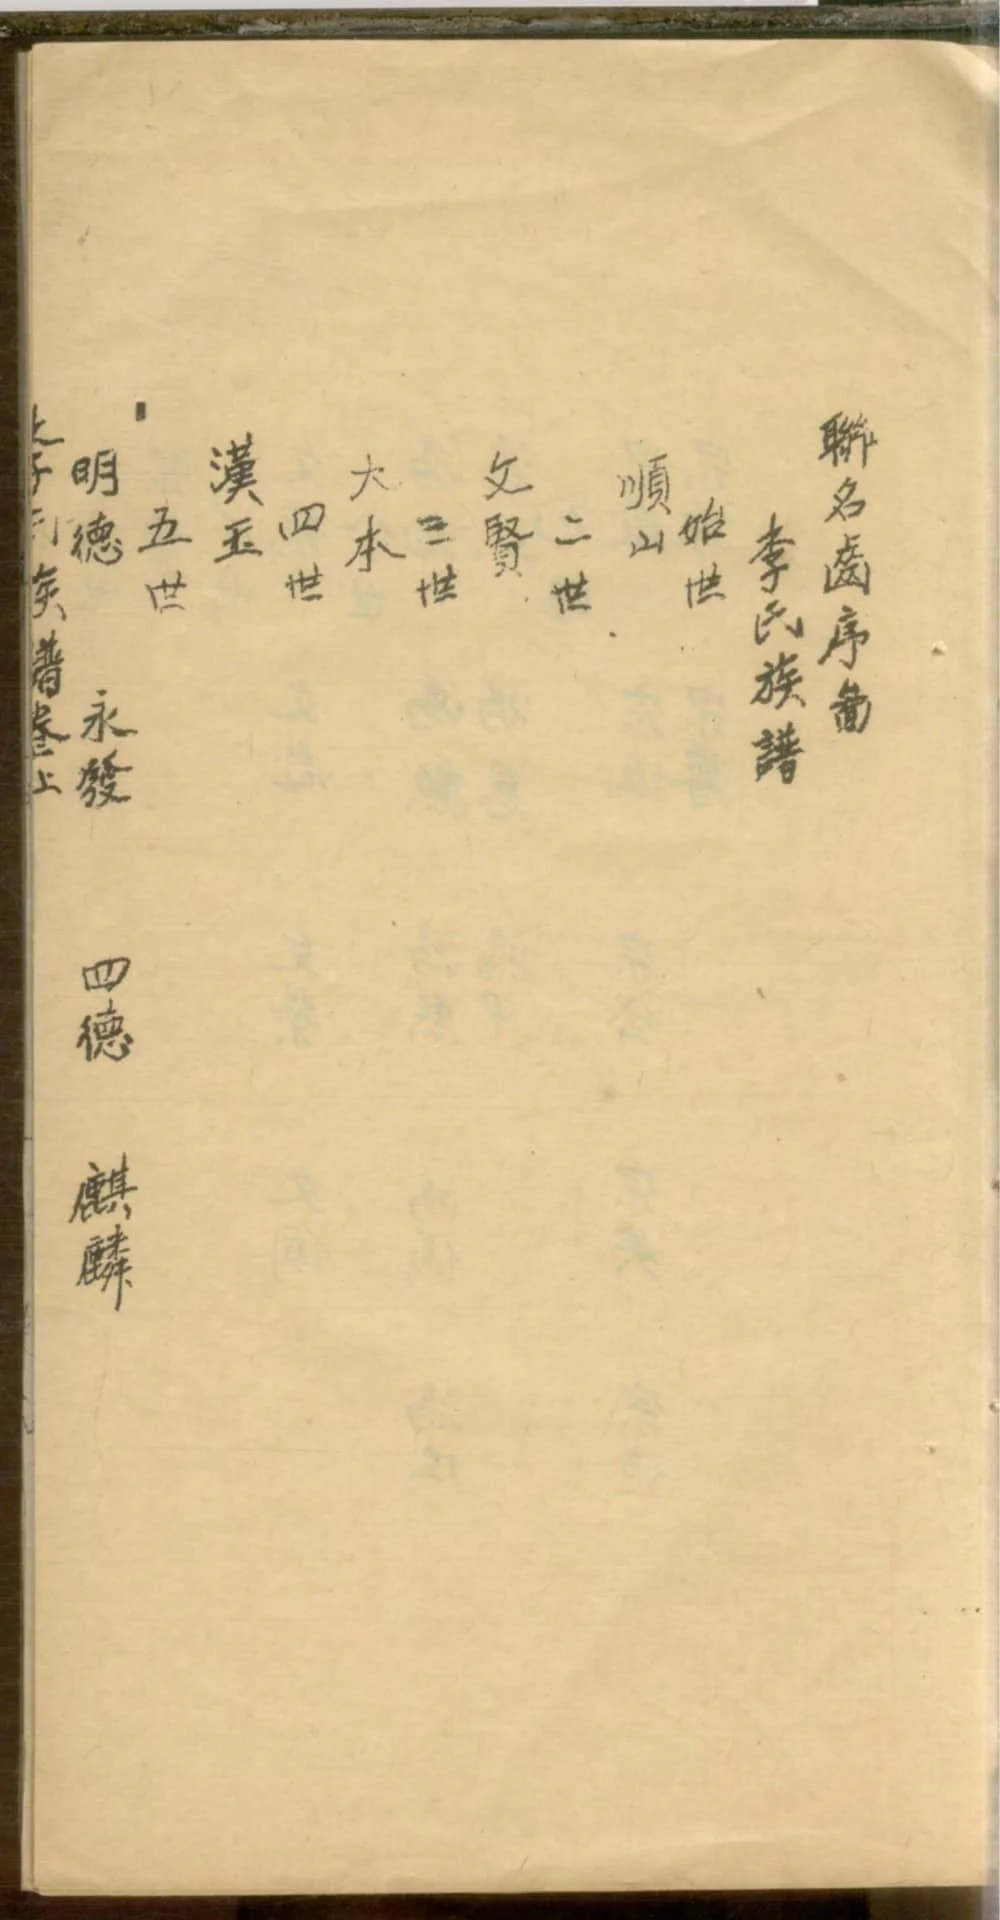 聯名齒序啚
李氏族譜
始世
順山
二世
文賢
三世
大本
四世
漢玉
五世
明德 永發 四德 麒麟
族譜卷上